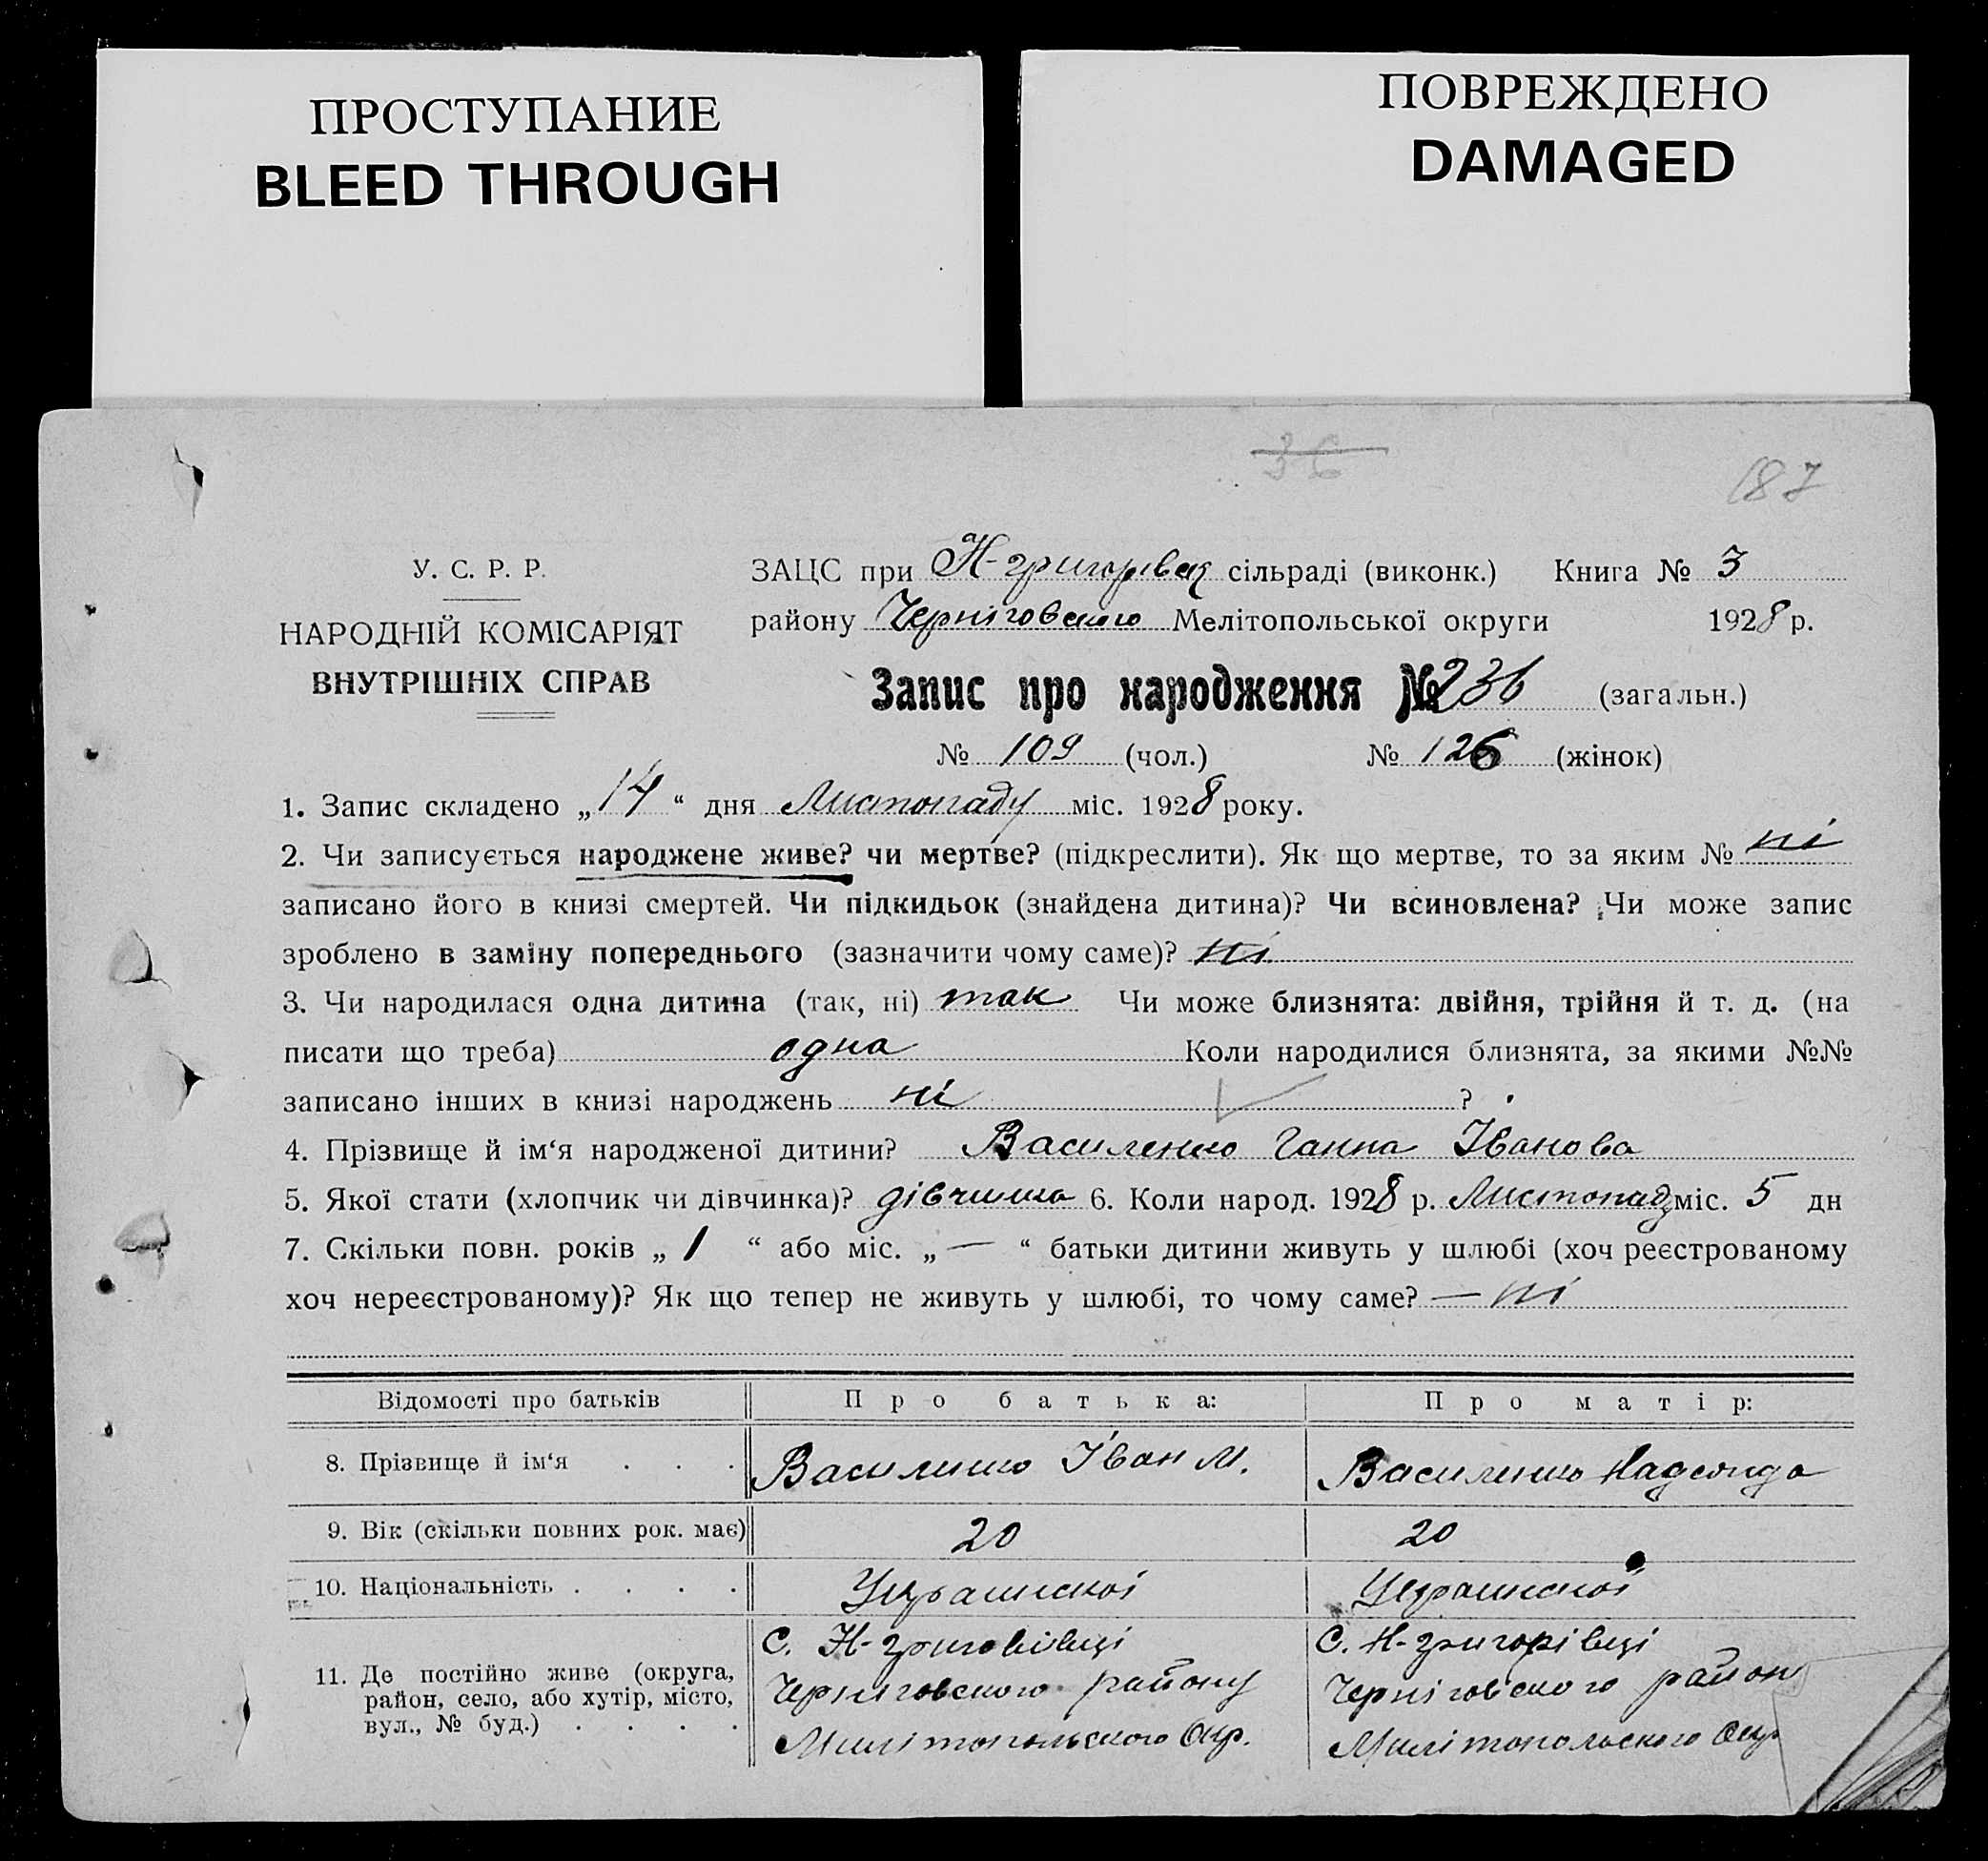 ПРОСТУПАНИЕ
BLEED THROUGH
ПОВРЕЖДЕНО
DAMAGED
36
187
У. С. Р. Р.
НАРОДНІЙ КОМІСАРІЯТ
ВНУТРІШНІХ СПРАВ
ЗАЦС при Н-григорівскя сільраді (виконк.) Книга № 3
району Черніговского Мелітопольської округи 1928 р.
Запис про народження № 236 (загальн.)
№ 109 (чол.) № 126 (жінок)
1. Запис складено „14“ дня Листопаду міс. 1928 року.
2. Чи записується народжене живе? чи мертве? (підкреслити). Як що мертве, то за яким № ні
записано його в книзі смертей. Чи підкидьок (знайдена дитина)? Чи всиновлена? Чи може запис
зроблено в заміну попереднього (зазначити чому саме)? ні
3. Чи народилася одна дитина (так, ні) так Чи може близнята: двійня, трійня й т. д. (на
писати що треба) одна Коли народилися близнята, за якими №№
записано інших в книзі народжень ні ?
4. Прізвище й ім‘я народженої дитини? Василенко Ганна Іванова
5. Якої стати (хлопчик чи дівчинка)? дівчинка 6. Коли народ. 1928 р. Листопад міс. 5 дн
7. Скільки повн. років „ 1 “ або міс. „ — “ батьки дитини живуть у шлюбі (хоч реєстрованому
хоч нереєстрованому)? Як що тепер не живуть у шлюбі, то чому саме? — ні
Відомості про батьків Про батька: Про матір:
8. Прізвище й ім‘я . . . Василенко Іван М. Василенко Надежда
9. Вік (скільки повних рок. має) 20 20
10. Національність . . . . Українскої Українскої
11. Де постійно живе (округа,
район, село, або хутір, місто,
вул., № буд.) . . . .
С. Н-григорівці
Черниговского району
Милітопольского Окр.
С. Н-григорівці
Черніговского район
Милітопольского Окр